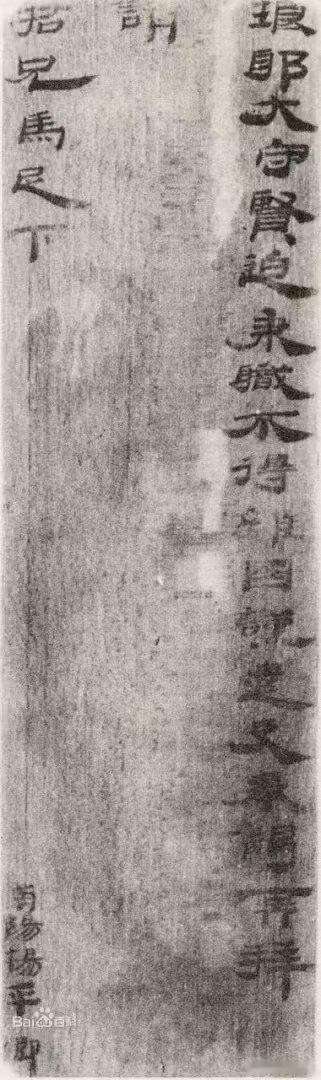 琅邪大守賢迫秉職不得離國謹遣吏奉謁再拜
請
君兄馬足下
南陽楊平卿
Bai百科